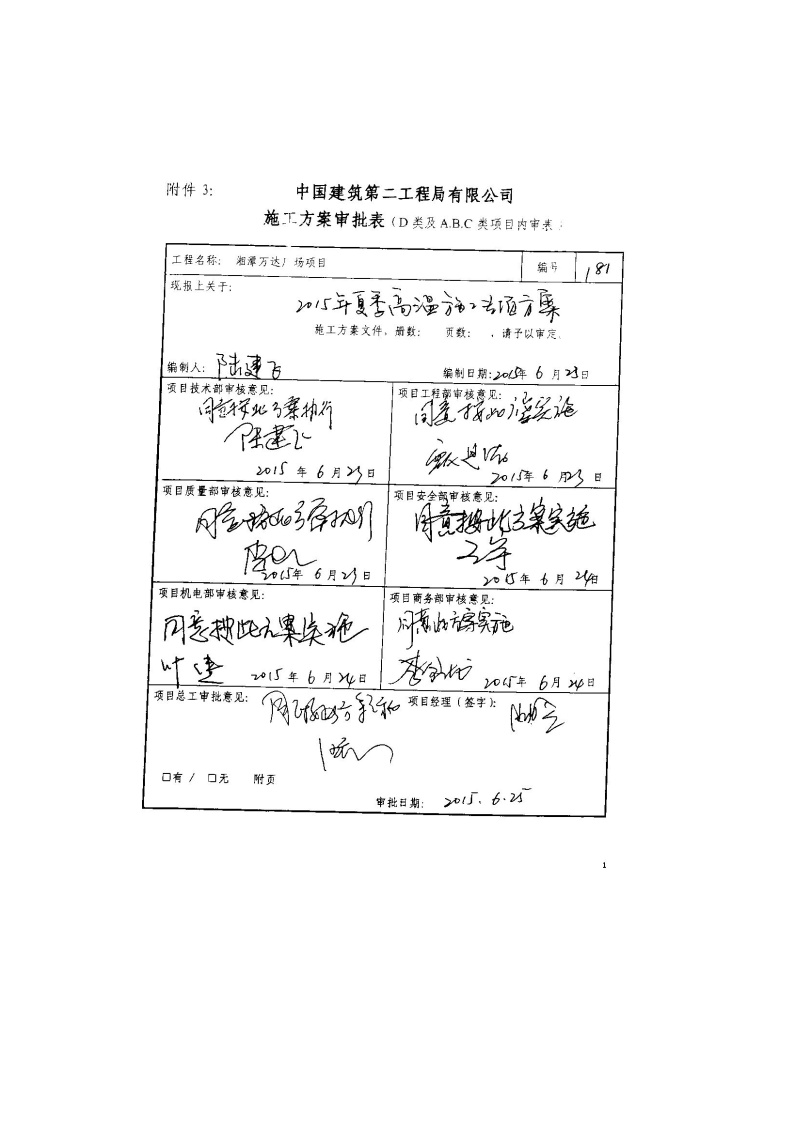 附件 3:
中国建筑第二工程局有限公司
施工方案审批表（D 类及 A.B.C 类项目内审表）
工程名称: 湘潭万达广场项目 编号 181
现报上关于:
2015年夏季高温施工专项方案
施工方案文件, 册数: 页数: , 请予以审定.
编制人: 陆建飞 编制日期: 2015年 6 月 23 日
项目技术部审核意见: 项目工程部审核意见:
同意按此方案执行 同意按此方案实施
陆建飞
2015 年 6 月 23 日 2015年 6 月 23 日
项目质量部审核意见: 项目安全部审核意见:
同意按此方案执行 同意按此方案实施
2015年 6 月 23 日 2015年 6 月 24 日
项目机电部审核意见: 项目商务部审核意见:
同意按此方案实施 同意此方案实施
叶建
2015 年 6 月 24 日 2015年 6 月 24 日
项目总工审批意见: 项目经理（签字）:
□有 / □无 附页
审批日期: 2015. 6.25
1